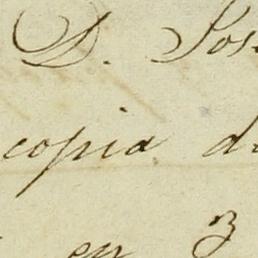 D. Jos
copia d
en 3